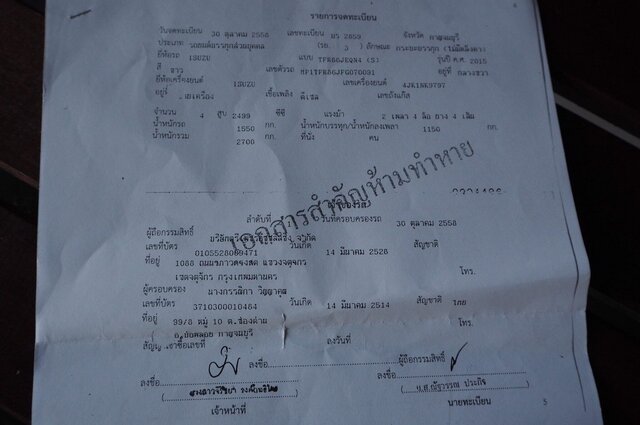 รายการจดทะเบียน
วันจดทะเบียน 30 ตุลาคม 2558 เลขทะเบียน บร 2659 จังหวัด กาญจนบุรี
ประเภท รถยนต์บรรทุกส่วนบุคคล (รย. 3 ) ลักษณะ กระบะบรรทุก (ไม่มีหลังคา)
ยี่ห้อรถ ISUZU แบบ TFR86JEQN4 (S) รุ่นปี ค.ศ. 2015
สี ขาว เลขตัวรถ MP1TFR86JFG070091 อยู่ที่ กลางขวา
ยี่ห้อเครื่องยนต์ ISUZU เลขเครื่องยนต์ 4JK1NK9797
อยู่ที่ เครื่อง เชื้อเพลิง ดีเซล เลขถังแก๊ส
จำนวน 4 สูบ 2499 ซีซี แรงม้า 2 เพลา 4 ล้อ ยาง 4 เส้น
น้ำหนักรถ 1550 กก. น้ำหนักบรรทุก/น้ำหนักลงเพลา 1150 กก.
น้ำหนักรวม 2700 กก. ที่นั่ง คน
เอกสารสำคัญห้ามทำหาย
ลำดับที่ วันที่ครอบครองรถ 30 ตุลาคม 2558
ผู้ถือกรรมสิทธิ์ จำกัด
เลขที่บัตร 0105528009471 วันเกิด 14 มีนาคม 2528 สัญชาติ
ที่อยู่ 1088 แขวงจตุจักร
เขตจตุจักร กรุงเทพมหานคร โทร.
ผู้ครอบครอง นางกรรณิกา
เลขที่บัตร 3710300010484 วันเกิด 14 มีนาคม 2514 สัญชาติ ไทย
ที่อยู่ 99/8 หมู่ 10 ต.ช่องด่าน โทร.
อ.บ่อพลอย กาญจนบุรี
สัญญาเช่าซื้อเลขที่ ลงวันที่
ลงชื่อ ผู้ถือกรรมสิทธิ์
ลงชื่อ ลงชื่อ
น.ส.ณัฐวรรณ ประกิจ
เจ้าหน้าที่ นายทะเบียน
5